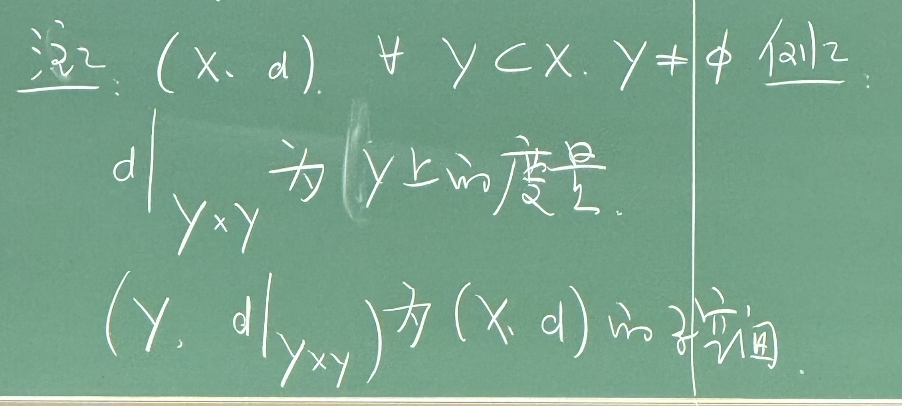 注2: (X, d). ∀ Y⊂X. Y≠∅ 例2:
d|_{Y×Y} 为 Y上的度量.
(Y, d|_{Y×Y}) 为 (X, d) 的子空间.